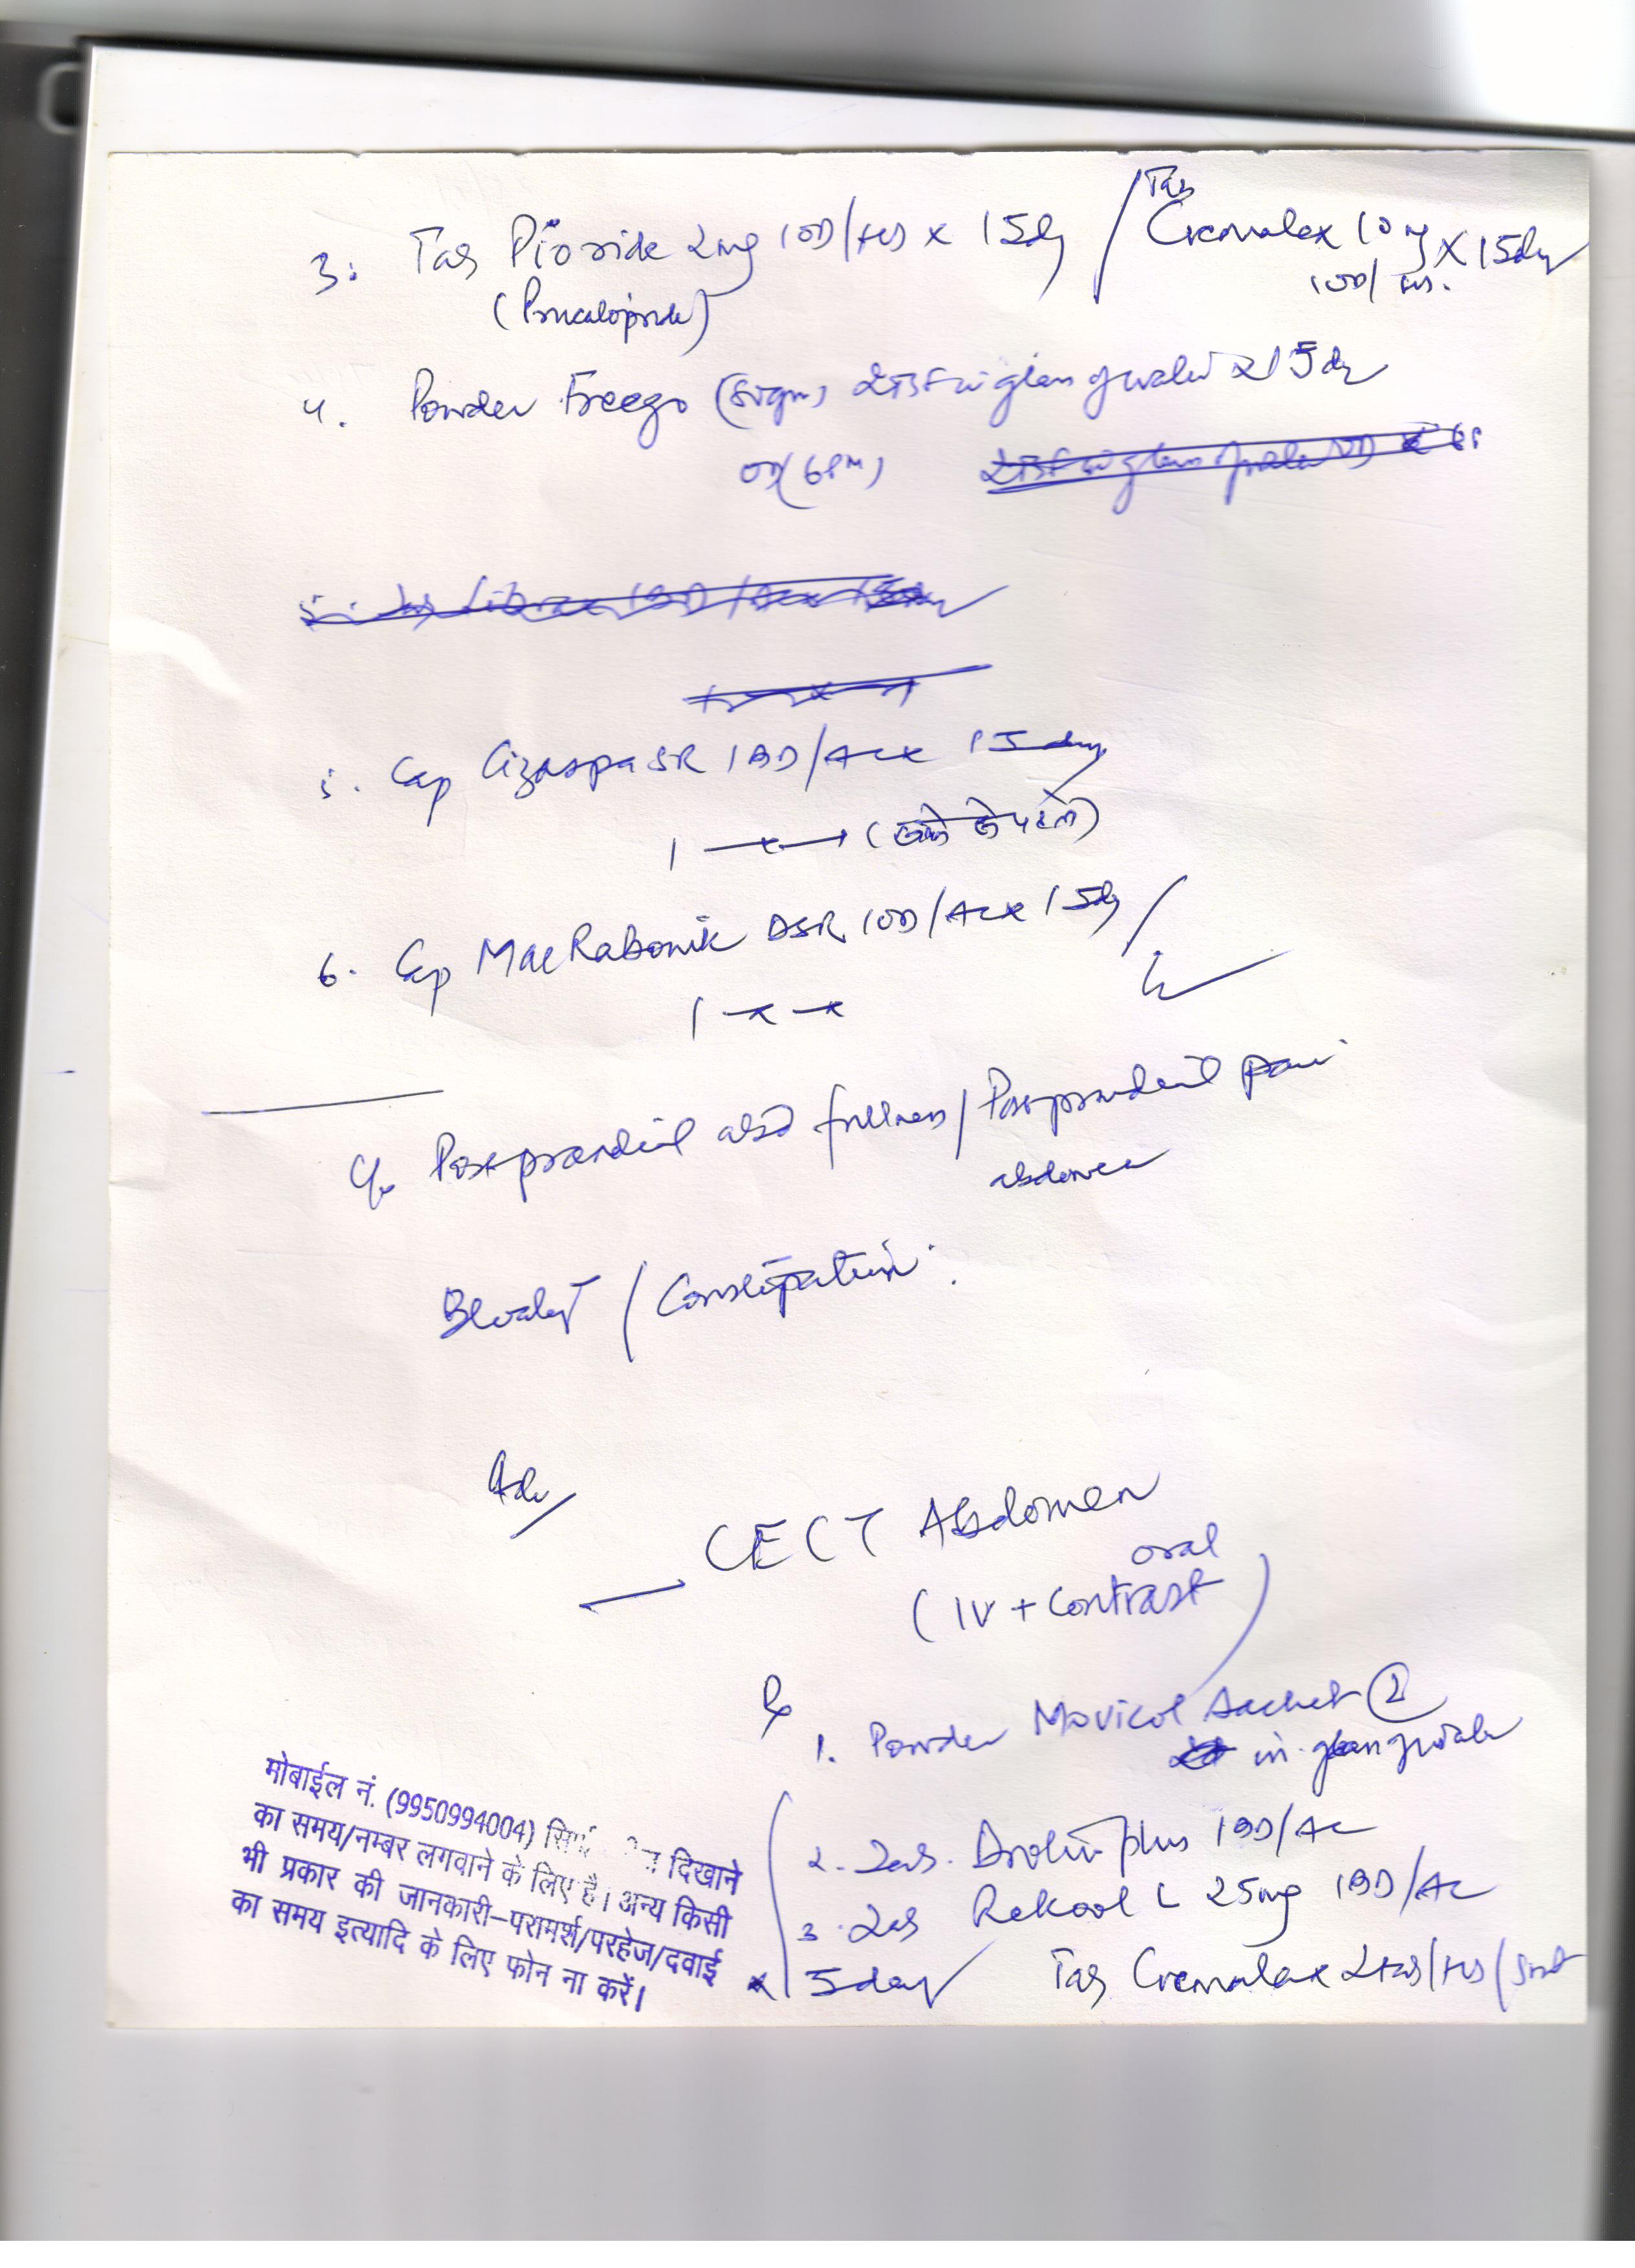 3. Tab Pioride 2mg 1OD/HS x 15dy / Tab Cremalax 10mg x 15dy
(Prucalopride) 1OD/HS.
4. Powder Freego (80gm) 2TSF in glass of water x 15dy
OD (6PM) 2TSF in glass of water OD x
5. Cap Cizaspa SR 1BD/AC x 15day
1 —x—1 (खाने से पहले)
6. Cap MacRabonik DSR 1OD/AC x 15dy /
1 -x -x
C/o Postprandial abd fullness / Postprandial pain
abdomen
Bloating / Constipation.
Adv/
CECT Abdomen
(IV + oral Contrast)
Rx
1. Powder Movicol Sachet 2
in glass of water
2. Tab. Drotin plus 1BD/AC
3. Tab Rekool L 25mg 1BD/AC
x 5day Tab Cremalax 2tab/HS/
मोबाईल नं. (9950994004) दिखाने
का समय/नम्बर लगवाने के लिए है। अन्य किसी
भी प्रकार की जानकारी-परामर्श/परहेज/दवाई
का समय इत्यादि के लिए फोन ना करें।